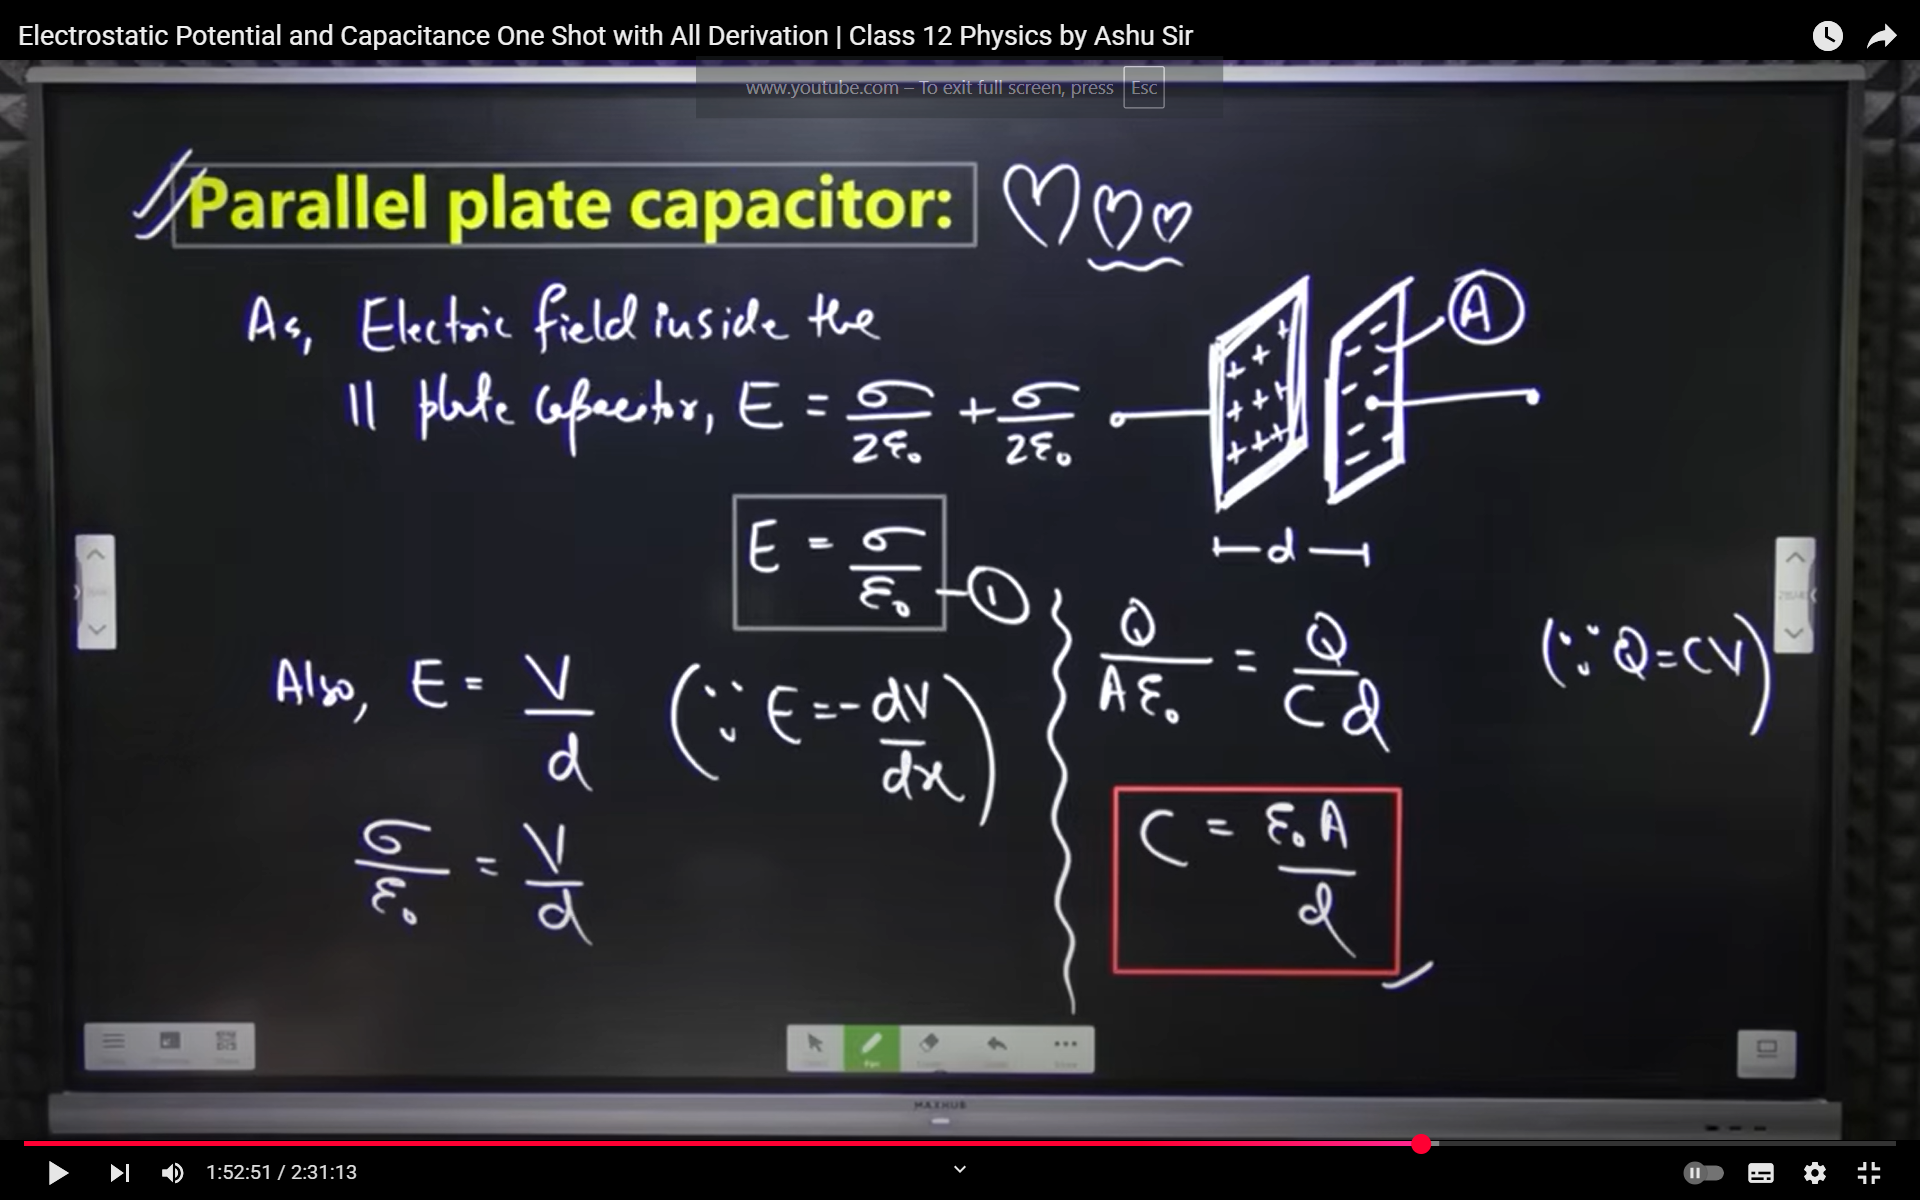 Electrostatic Potential and Capacitance One Shot with All Derivation | Class 12 Physics by Ashu Sir
www.youtube.com – To exit full screen, press Esc
Parallel plate capacitor:
As, Electric field inside the
|| plate capacitor, E = σ/2ε₀ + σ/2ε₀
A
d
E = σ/ε₀ — ①
Also, E = V/d (∵ E = -dV/dx)
σ/ε₀ = V/d
Q/Aε₀ = Q/Cd (∵ Q = CV)
C = ε₀A/d
Pen
MAXHUB
1:52:51 / 2:31:13